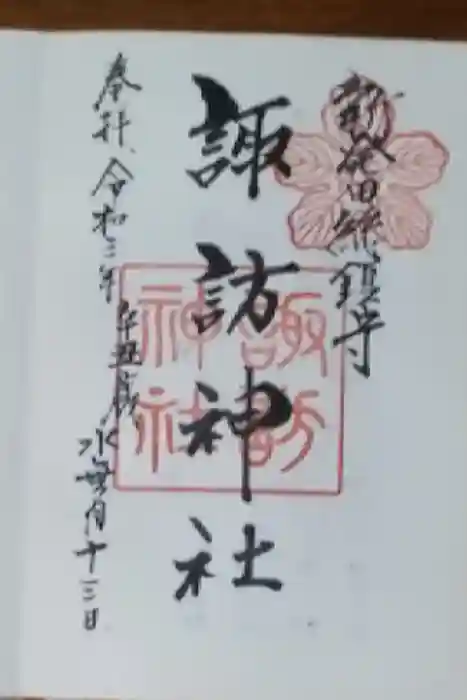 新発田総鎮守
諏訪神社
諏訪
神社
奉拝、令和三年
辛丑歳
水無月十三日